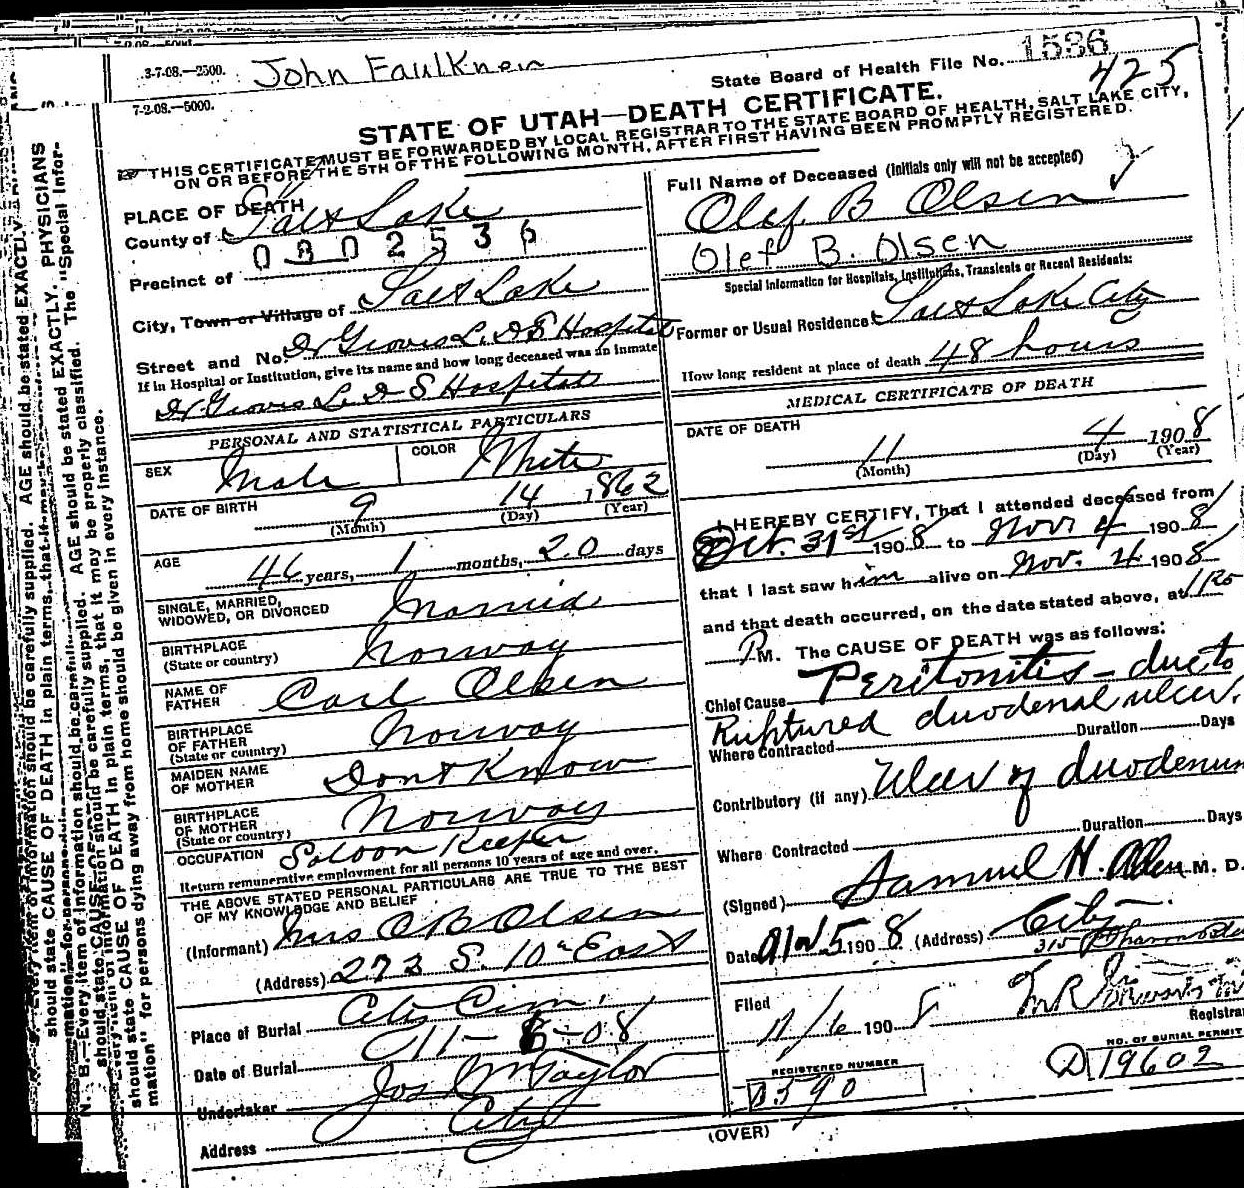 3-7-08.—2500. John Faulkner
7-2-08.—5000.
State Board of Health File No. 1536
425
STATE OF UTAH—DEATH CERTIFICATE.
THIS CERTIFICATE MUST BE FORWARDED BY LOCAL REGISTRAR TO THE STATE BOARD OF HEALTH, SALT LAKE CITY,
ON OR BEFORE THE 5TH OF THE FOLLOWING MONTH, AFTER FIRST HAVING BEEN PROMPTLY REGISTERED.
PLACE OF DEATH
County of Salt Lake
0802536
Precinct of
City, Town or Village of Salt Lake
Street and No. Dr Groves L. D S Hospital
If in Hospital or Institution, give its name and how long deceased was an inmate
Dr. Groves L. D S Hospital
PERSONAL AND STATISTICAL PARTICULARS
SEX Male COLOR White
DATE OF BIRTH 9 14 1862
(Month) (Day) (Year)
AGE 46 years, 1 months, 20 days
SINGLE, MARRIED,
WIDOWED, OR DIVORCED Married
BIRTHPLACE
(State or country) Norway
NAME OF
FATHER Carl Olsen
BIRTHPLACE
OF FATHER
(State or country) Norway
MAIDEN NAME
OF MOTHER Dont Know
BIRTHPLACE
OF MOTHER
(State or country) Norway
OCCUPATION Saloon Keeper
Return remunerative employment for all persons 10 years of age and over.
THE ABOVE STATED PERSONAL PARTICULARS ARE TRUE TO THE BEST
OF MY KNOWLEDGE AND BELIEF
(Informant) Mrs O B Olsen
(Address) 273 S. 10th East
Place of Burial City Cem.
Date of Burial 11-6-08
Undertaker Jos Wm Taylor
Address City
Full Name of Deceased (initials only will not be accepted)
Olef B Olsen
Olef B. Olsen
Special Information for Hospitals, Institutions, Transients or Recent Residents:
Former or Usual Residence Salt Lake City
How long resident at place of death 48 hours
MEDICAL CERTIFICATE OF DEATH
DATE OF DEATH
11 4 1908
(Month) (Day) (Year)
I HEREBY CERTIFY, That I attended deceased from
Oct. 31st 1908 to Nov 4 1908
that I last saw him alive on Nov. 4 1908
and that death occurred, on the date stated above, at 1
P M. The CAUSE OF DEATH was as follows:
Chief Cause Peritonitis - due to
Ruptured duodenal ulcer.
Where Contracted Duration Days
Contributory (if any) Ulcer of duodenum
Duration Days
Where Contracted
(Signed) Samuel H. Allen M. D.
Date Nov 5 1908 (Address) City
315
Filed 11/6 1908
Registrar
REGISTERED NUMBER NO. OF BURIAL PERMIT
D590 D19602
(OVER)
N. B.—Every item of information should be carefully supplied. AGE should be stated EXACTLY. PHYSICIANS
should state CAUSE OF DEATH in plain terms, that it may be properly classified. The "Special Infor-
mation" for persons dying away from home should be given in every instance.